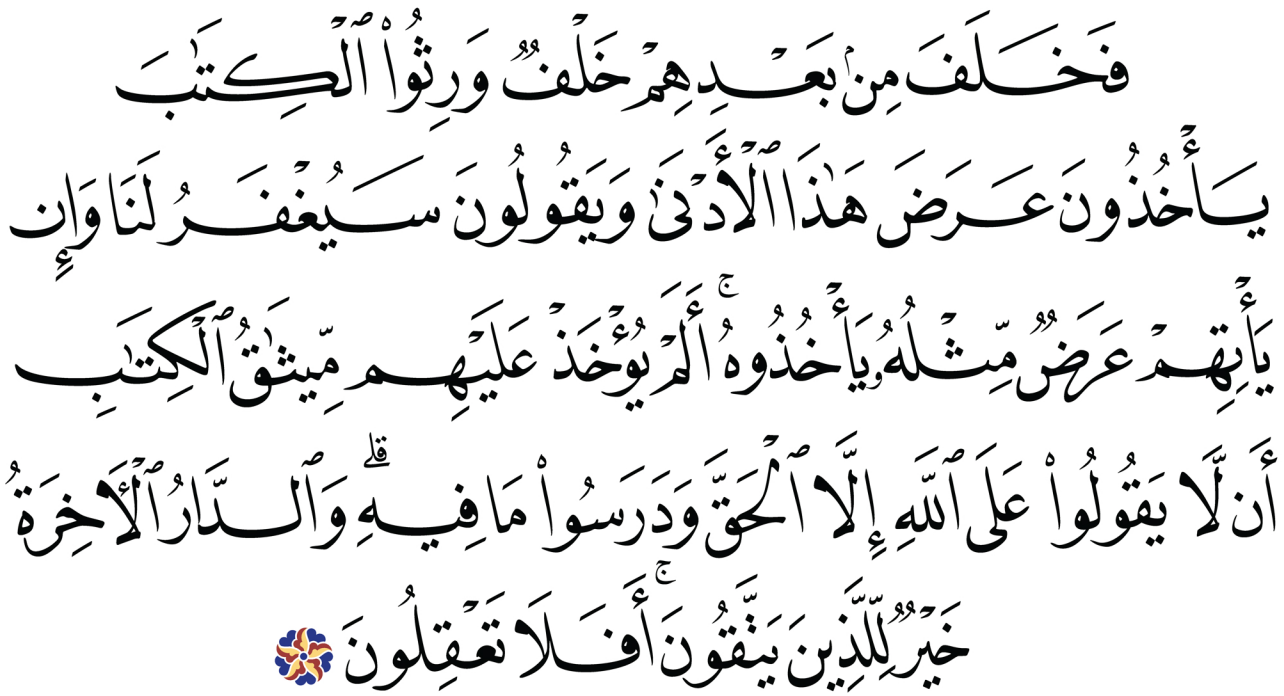 فَخَلَفَ مِنۢ بَعۡدِهِمۡ خَلۡفٞ وَرِثُواْ ٱلۡكِتَٰبَ
يَأۡخُذُونَ عَرَضَ هَٰذَا ٱلۡأَدۡنَىٰ وَيَقُولُونَ سَيُغۡفَرُ لَنَا وَإِن
يَأۡتِهِمۡ عَرَضٞ مِّثۡلُهُۥ يَأۡخُذُوهُۚ أَلَمۡ يُؤۡخَذۡ عَلَيۡهِم مِّيثَٰقُ ٱلۡكِتَٰبِ
أَن لَّا يَقُولُواْ عَلَى ٱللَّهِ إِلَّا ٱلۡحَقَّ وَدَرَسُواْ مَا فِيهِۗ وَٱلدَّارُ ٱلۡأٓخِرَةُ
خَيۡرٞ لِّلَّذِينَ يَتَّقُونَۚ أَفَلَا تَعۡقِلُونَ